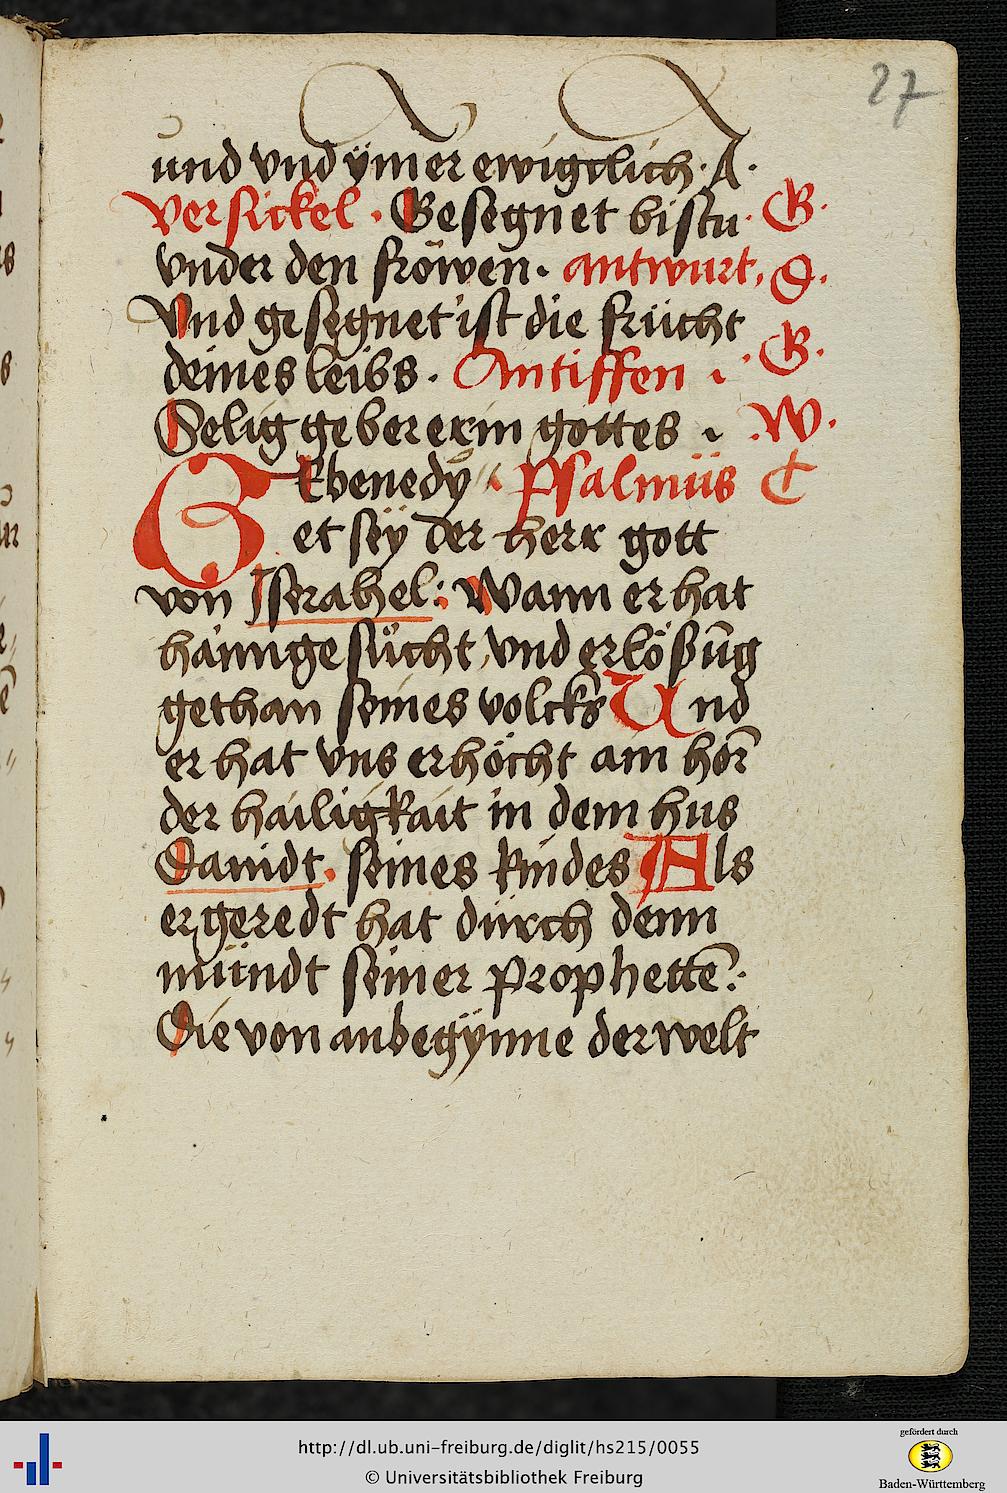 27
und vnd ÿmer ewigclich · A ·
Versickel · Gesegnet bistu · G ·
vnder den fröwen · antwurt, S ·
Vnd gesegnet ist die frücht
deines leibs · Antiffen · G ·
Selig gebererin gottes · W ·
GEbenedÿ · Psalmüs C
et seÿ der herr gott
von Jserahel : Wann er hat
haimgesücht vnd erlößūg
gethan seines volcks Und
er hat vns erhöcht am hor̄
der hailigkait in dem hus
Dauidt · seines kindes Als
er geredt hat dürch denn
mündt seiner prophettē :
Die von anbegÿnne der welt
http://dl.ub.uni-freiburg.de/diglit/hs215/0055
© Universitätsbibliothek Freiburg
gefördert durch
Baden-Württemberg